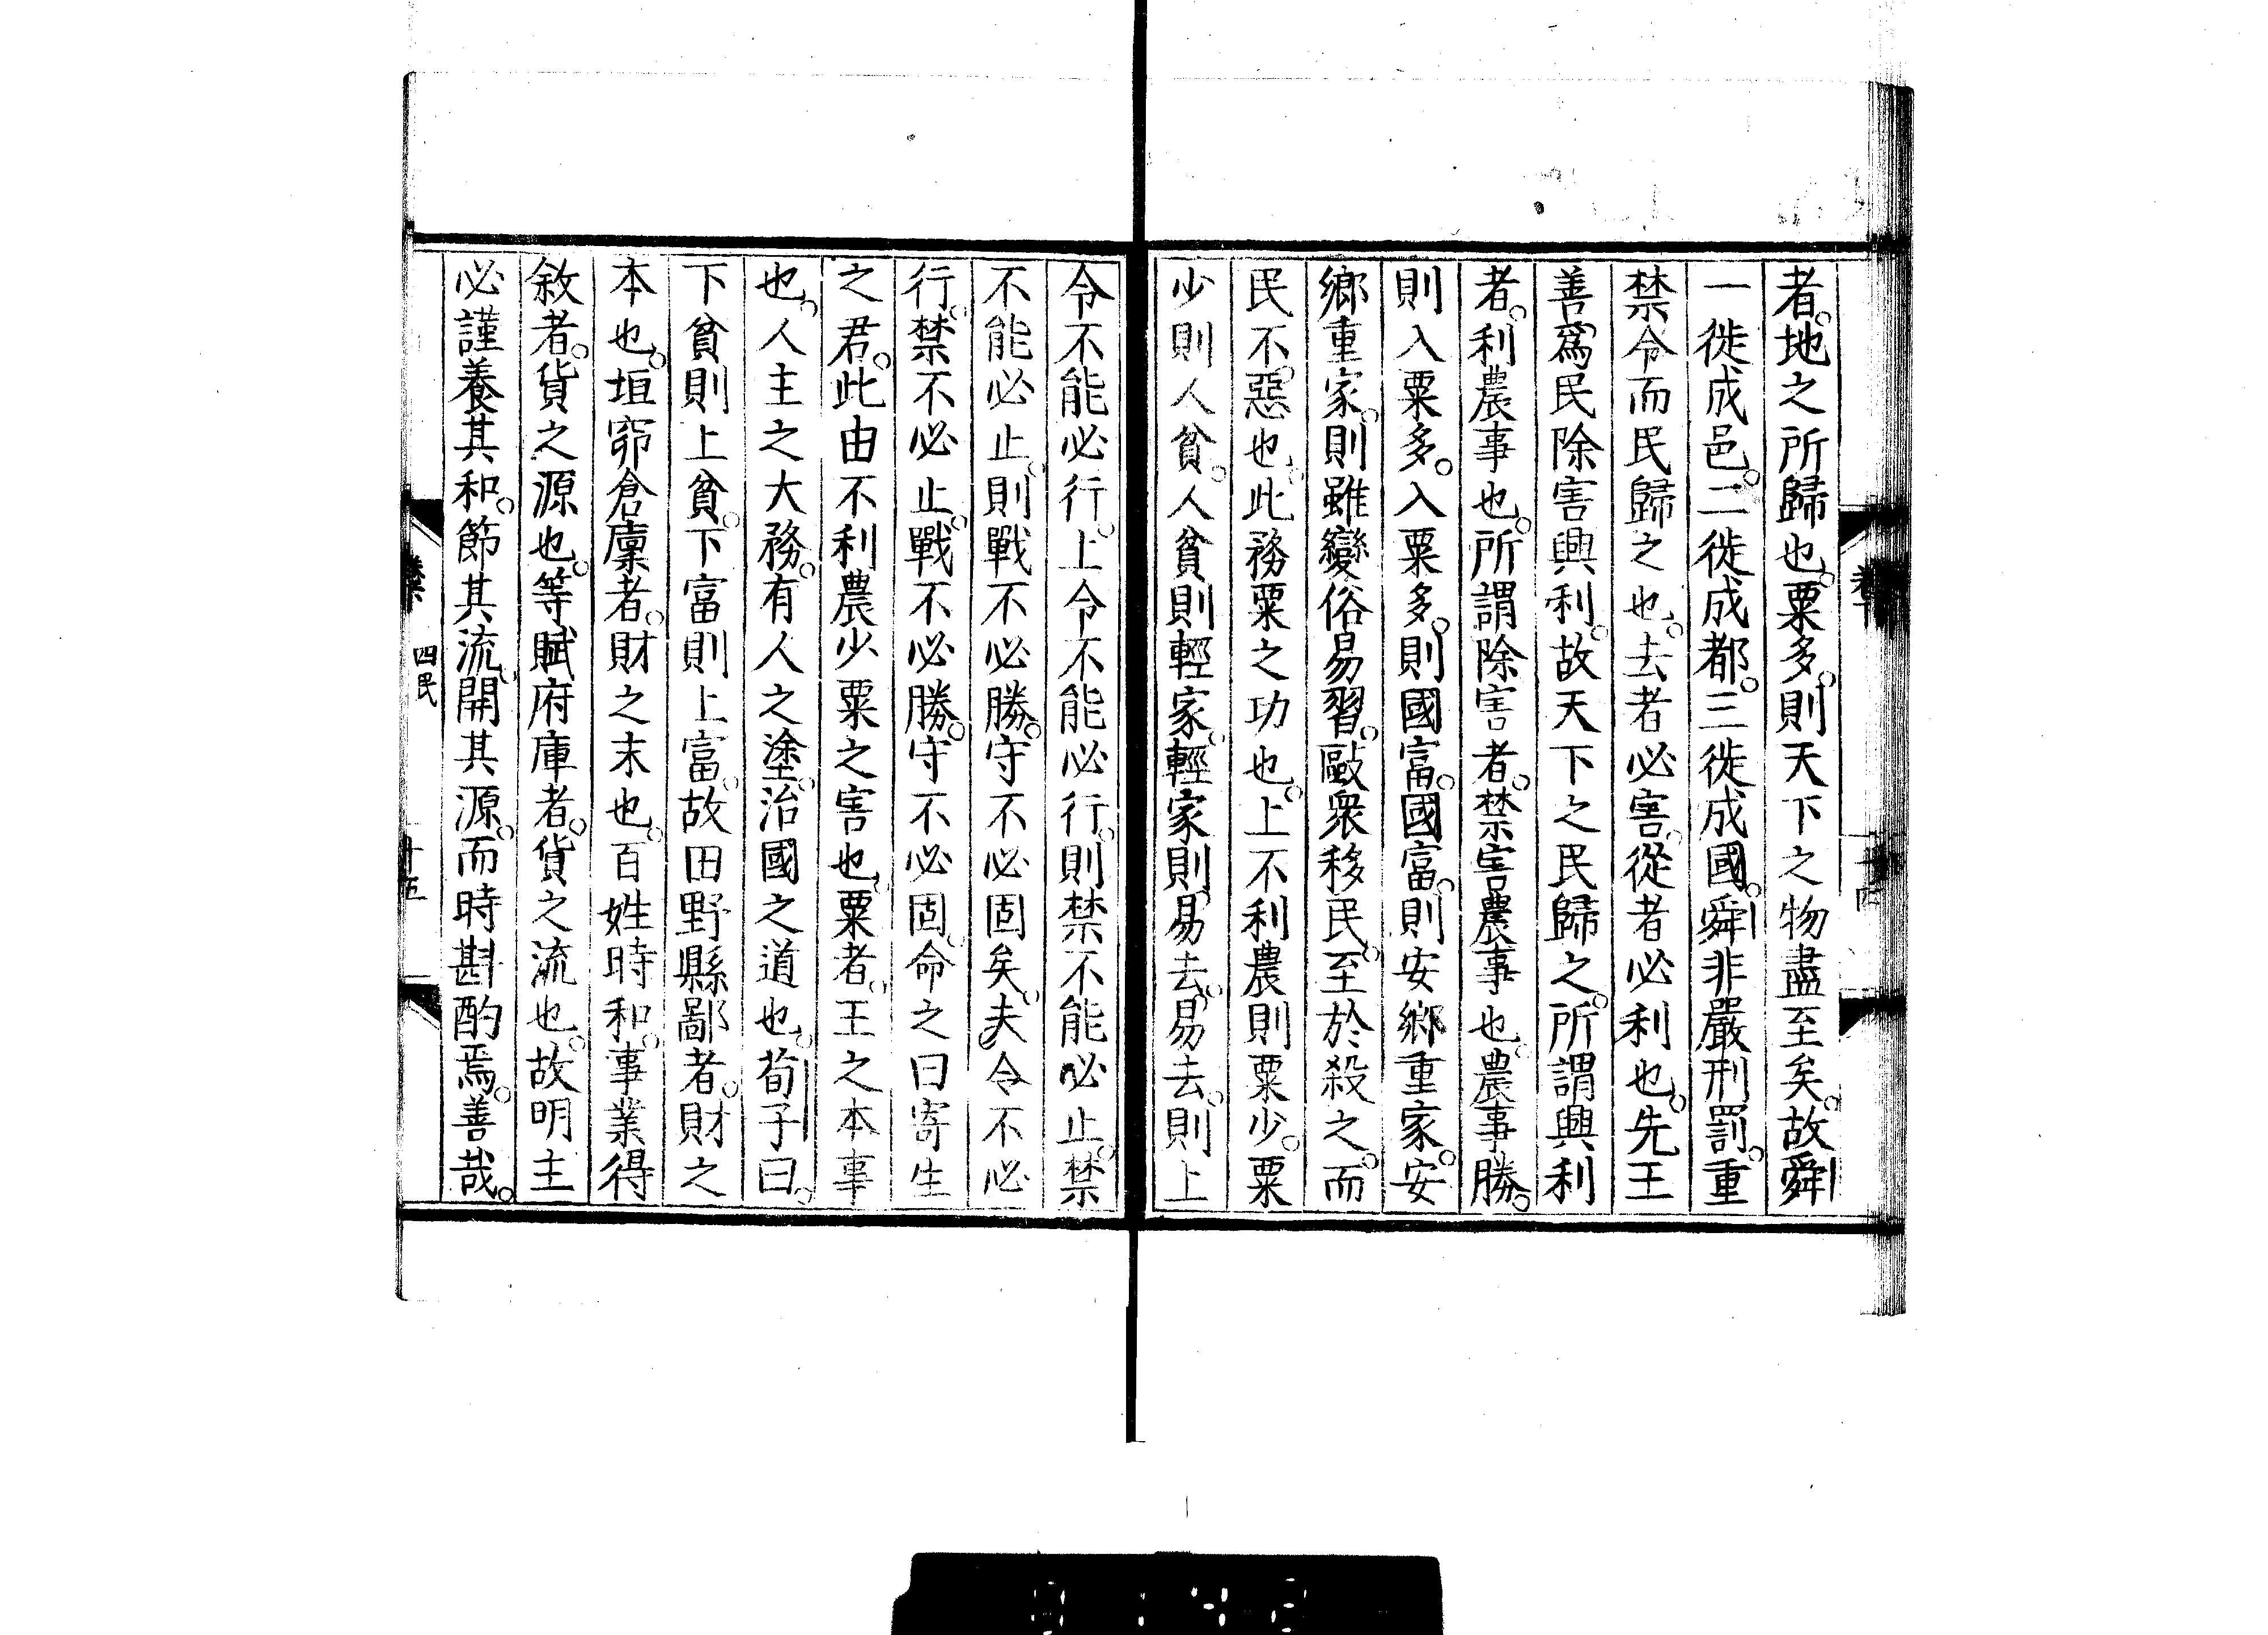 者。地之所歸也。粟多。則天下之物盡至矣。故舜
一徙成邑。二徙成都。三徙成國。舜非嚴刑罰。重
禁令而民歸之也。去者必害。從者必利也。先王
善爲民除害興利。故天下之民歸之。所謂興利
者。利農事也。所謂除害者。禁害農事也。農事勝。
則入粟多。入粟多。則國富。國富。則安鄉重家。安
鄉重家。則雖變俗易習。敺衆移民。至於殺之。而
民不惡也。此務粟之功也。上不利農則粟少。粟
少則人貧。人貧則輕家。輕家則易去。易去。則上
令不能必行。上令不能必行。則禁不能必止。禁
不能必止。則戰不必勝。守不必固矣。夫令不必
行。禁不必止。戰不必勝。守不必固。命之曰寄生
之君。此由不利農少粟之害也。粟者。王之本事
也。人主之大務。有人之塗。治國之道也。荀子曰。
下貧則上貧。下富則上富。故田野縣鄙者。財之
本也。垣窌倉廩者。財之末也。百姓時和。事業得
敘者。貨之源也。等賦府庫者。貨之流也。故明主
必謹養其和。節其流。開其源。而時斟酌焉。善哉。
四民
十五